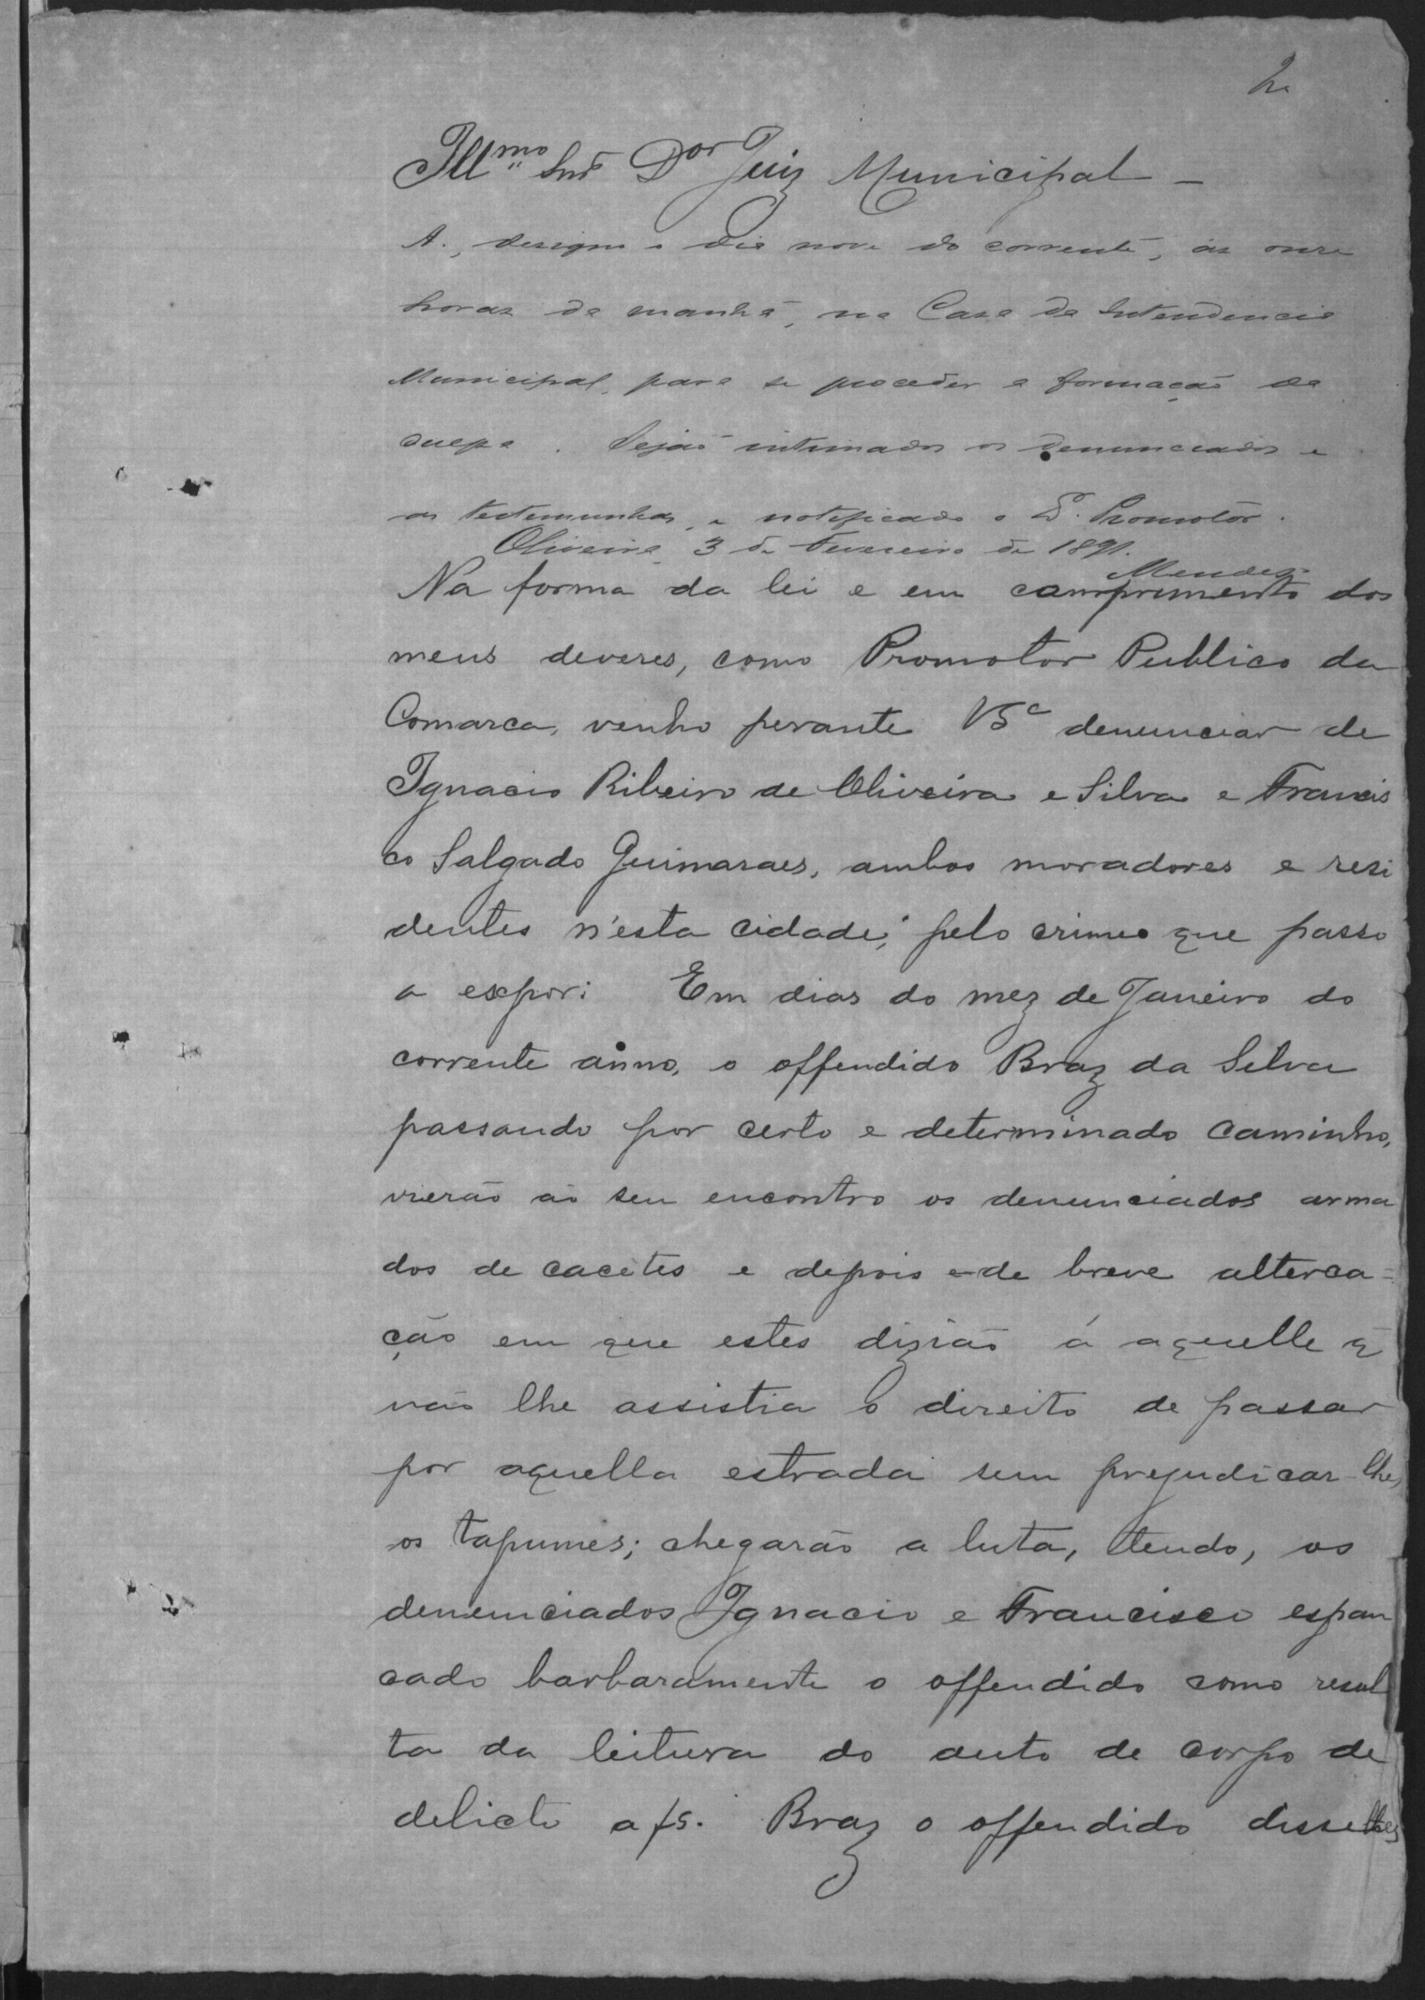 2
Illmo Snr Dor Juiz Municipal —
A., designo o dia nove do corrente, ás onze
horas da manhã, na Casa da Intendencia
Municipal, para se proceder a formação da
culpa. Sejão intimados os denunciados e
as testemunhas, e notificado o Dr. Promotor.
Oliveira 3 de Fevereiro de 1891.
Mendes
Na forma da lei e em comprimento dos
meus deveres, como Promotor Publico da
Comarca, venho perante VSa denunciar de
Ignacio Ribeiro de Oliveira e Silva e Francis
co Salgado Guimaraes, ambos moradores e resi
dentes n'esta cidade; pelo crime que passo
a expor: Em dias do mez de Janeiro do
corrente anno, o offendido Braz da Silva
passando por certo e determinado caminho,
vierão ao seu encontro os denunciados arma
dos de cacetes e depois de breve alterca=
ção em que estes dizião á aquelle q̃
não lhe assistia o direito de passar
por aquella estrada sem prejudicar-lhes
os tapumes; chegarão a luta, tendo, os
denunciados Ignacio e Francisco espan
cado barbaramente o offendido como resul
ta da leitura do auto de corpo de
delicto a fs. Braz o offendido disse lhes